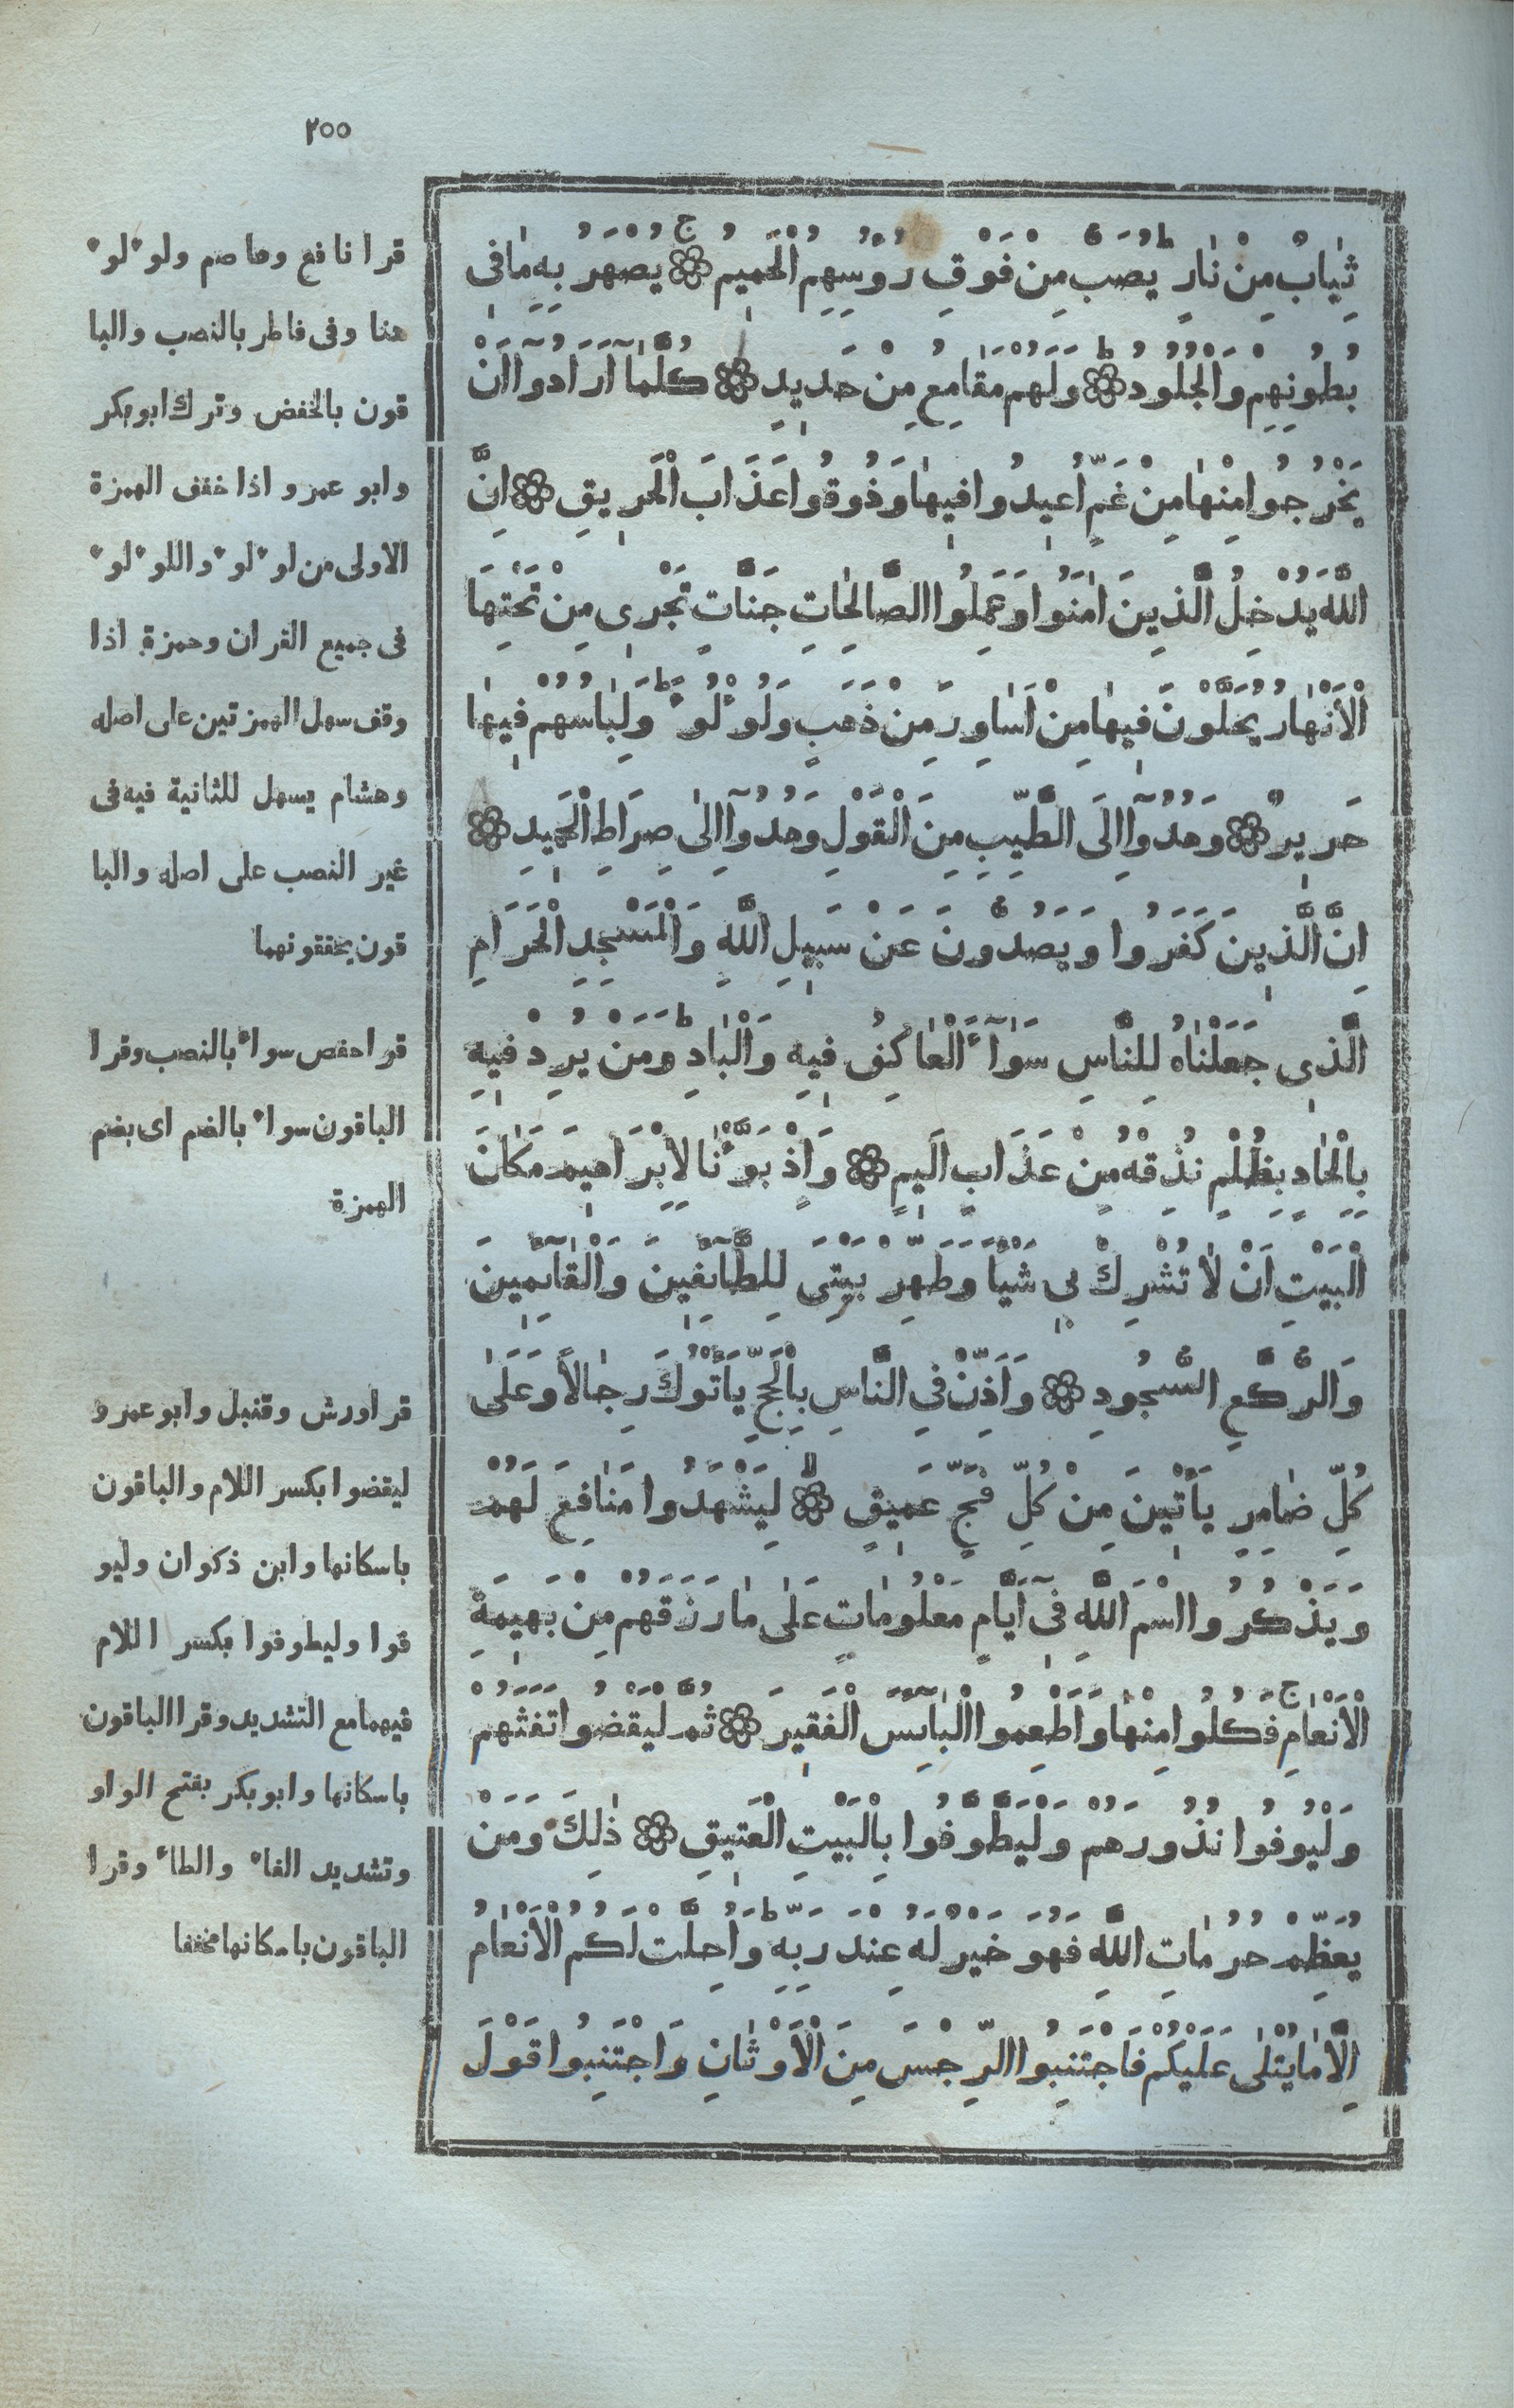 ٢٠٠
ثِيَابٌ مِنْ نَارٍ ط يُصَبُّ مِنْ فَوْقِ رُؤُسِهِمُ الْحَمِيمُ ج يُصْهَرُ بِهِ مَا فِى
بُطُونِهِمْ وَالْجُلُودُ ط وَلَهُمْ مَقَامِعُ مِنْ حَدِيدٍ كُلَّمَآ اَرَادُوٓا اَنْ
يَخْرُجُوا مِنْهَا مِنْ غَمٍّ اُعِيدُوا فِيهَا وَذُوقُوا عَذَابَ الْحَرِيقِ اِنَّ
اللَّهَ يُدْخِلُ الَّذِينَ اٰمَنُوا وَعَمِلُوا الصَّالِحَاتِ جَنَّاتٍ تَجْرِى مِنْ تَحْتِهَا
الْاَنْهَارُ يُحَلَّوْنَ فِيهَا مِنْ اَسَاوِرَ مِنْ ذَهَبٍ وَلُؤْلُؤًا ط وَلِبَاسُهُمْ فِيهَا
حَرِيرٌ وَهُدُوٓا اِلَى الطَّيِّبِ مِنَ الْقَوْلِ وَهُدُوٓا اِلٰى صِرَاطِ الْحَمِيدِ
اِنَّ الَّذِينَ كَفَرُوا وَيَصُدُّونَ عَنْ سَبِيلِ اللَّهِ وَالْمَسْجِدِ الْحَرَامِ
الَّذِى جَعَلْنَاهُ لِلنَّاسِ سَوَآءً الْعَاكِفُ فِيهِ وَالْبَادِ ط وَمَنْ يُرِدْ فِيهِ
بِاِلْحَادٍ بِظُلْمٍ نُذِقْهُ مِنْ عَذَابٍ اَلِيمٍ وَاِذْ بَوَّأْنَا لِاِبْرَاهِيمَ مَكَانَ
الْبَيْتِ اَنْ لَا تُشْرِكْ بِى شَيْئًا وَطَهِّرْ بَيْتِىَ لِلطَّآئِفِينَ وَالْقَآئِمِينَ
وَالرُّكَّعِ السُّجُودِ وَاَذِّنْ فِى النَّاسِ بِالْحَجِّ يَأْتُوكَ رِجَالًا وَعَلٰى
كُلِّ ضَامِرٍ يَأْتِينَ مِنْ كُلِّ فَجٍّ عَمِيقٍ لا لِيَشْهَدُوا مَنَافِعَ لَهُمْ
وَيَذْكُرُوا اسْمَ اللَّهِ فِىٓ اَيَّامٍ مَعْلُومَاتٍ عَلٰى مَا رَزَقَهُمْ مِنْ بَهِيمَةِ
الْاَنْعَامِ ج فَكُلُوا مِنْهَا وَاَطْعِمُوا الْبَآئِسَ الْفَقِيرَ ثُمَّ لْيَقْضُوا تَفَثَهُمْ
وَلْيُوفُوا نُذُورَهُمْ وَلْيَطَّوَّفُوا بِالْبَيْتِ الْعَتِيقِ ذٰلِكَ وَمَنْ
يُعَظِّمْ حُرُمَاتِ اللَّهِ فَهُوَ خَيْرٌ لَهُ عِنْدَ رَبِّهِ ط وَاُحِلَّتْ لَكُمُ الْاَنْعَامُ
اِلَّا مَا يُتْلٰى عَلَيْكُمْ فَاجْتَنِبُوا الرِّجْسَ مِنَ الْاَوْثَانِ وَاجْتَنِبُوا قَوْلَ
قرا نافع وعاصم ولوءلوء
هنا وفى فاطر بالنصب والبا
قون بالخفض وترك ابو بكر
وابو عمرو اذا خفف الهمزة
الاولى من لوءلوء واللوءلوء
فى جميع القران وحمزة اذا
وقف سهل الهمزتين على اصله
وهشام يسهل للثانية فيه فى
غير النصب على اصله والبا
قون يحققونهما
قرا حفص سواء بالنصب وقرا
الباقون سواء بالضم اى بضم
الهمزة
قرا ورش وقنبل وابو عمرو
ليقضوا بكسر اللام والباقون
باسكانها وابن ذكوان وليو
فوا وليطوفوا بكسر اللام
فيهما مع التشديد وقرا الباقون
باسكانها وابو بكر بفتح الواو
وتشديد الفاء والطاء وقرا
الباقون باسكانها مخففا